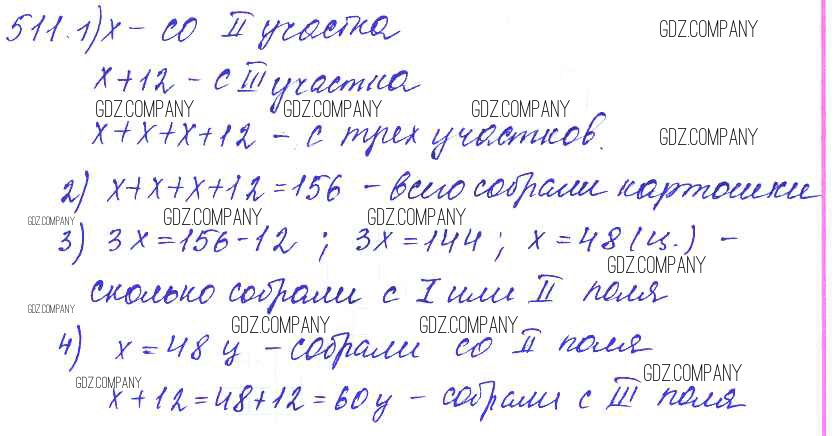 511. 1) x – со II участка GDZ.COMPANY
x + 12 – с III участка
GDZ.COMPANY GDZ.COMPANY GDZ.COMPANY
x + x + x + 12 – с трех участков. GDZ.COMPANY
2) x + x + x + 12 = 156 – всего собрали картошки
GDZ.COMPANY GDZ.COMPANY GDZ.COMPANY
3) 3x = 156 - 12 ; 3x = 144 ; x = 48 (ц.) –
GDZ.COMPANY
сколько собрали с I или II поля
GDZ.COMPANY
GDZ.COMPANY GDZ.COMPANY
4) x = 48 ц – собрали со II поля
GDZ.COMPANY GDZ.COMPANY
x + 12 = 48 + 12 = 60 ц – собрали с III поля